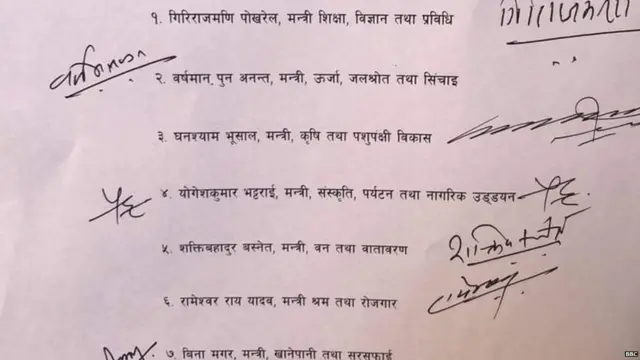 १. गिरिराजमणि पोखरेल, मन्त्री शिक्षा, विज्ञान तथा प्रविधि
गिरिराजमणि
२. वर्षमान पुन अनन्त, मन्त्री, ऊर्जा, जलश्रोत तथा सिंचाइ
३. घनश्याम भूसाल, मन्त्री, कृषि तथा पशुपंक्षी विकास
४. योगेशकुमार भट्टराई, मन्त्री, संस्कृति, पर्यटन तथा नागरिक उड्डयन
५. शक्तिबहादुर बस्नेत, मन्त्री, वन तथा वातावरण
६. रामेश्वर राय यादव, मन्त्री श्रम तथा रोजगार
७. बिना मगर, मन्त्री, खानेपानी तथा सरसफाई
BBC